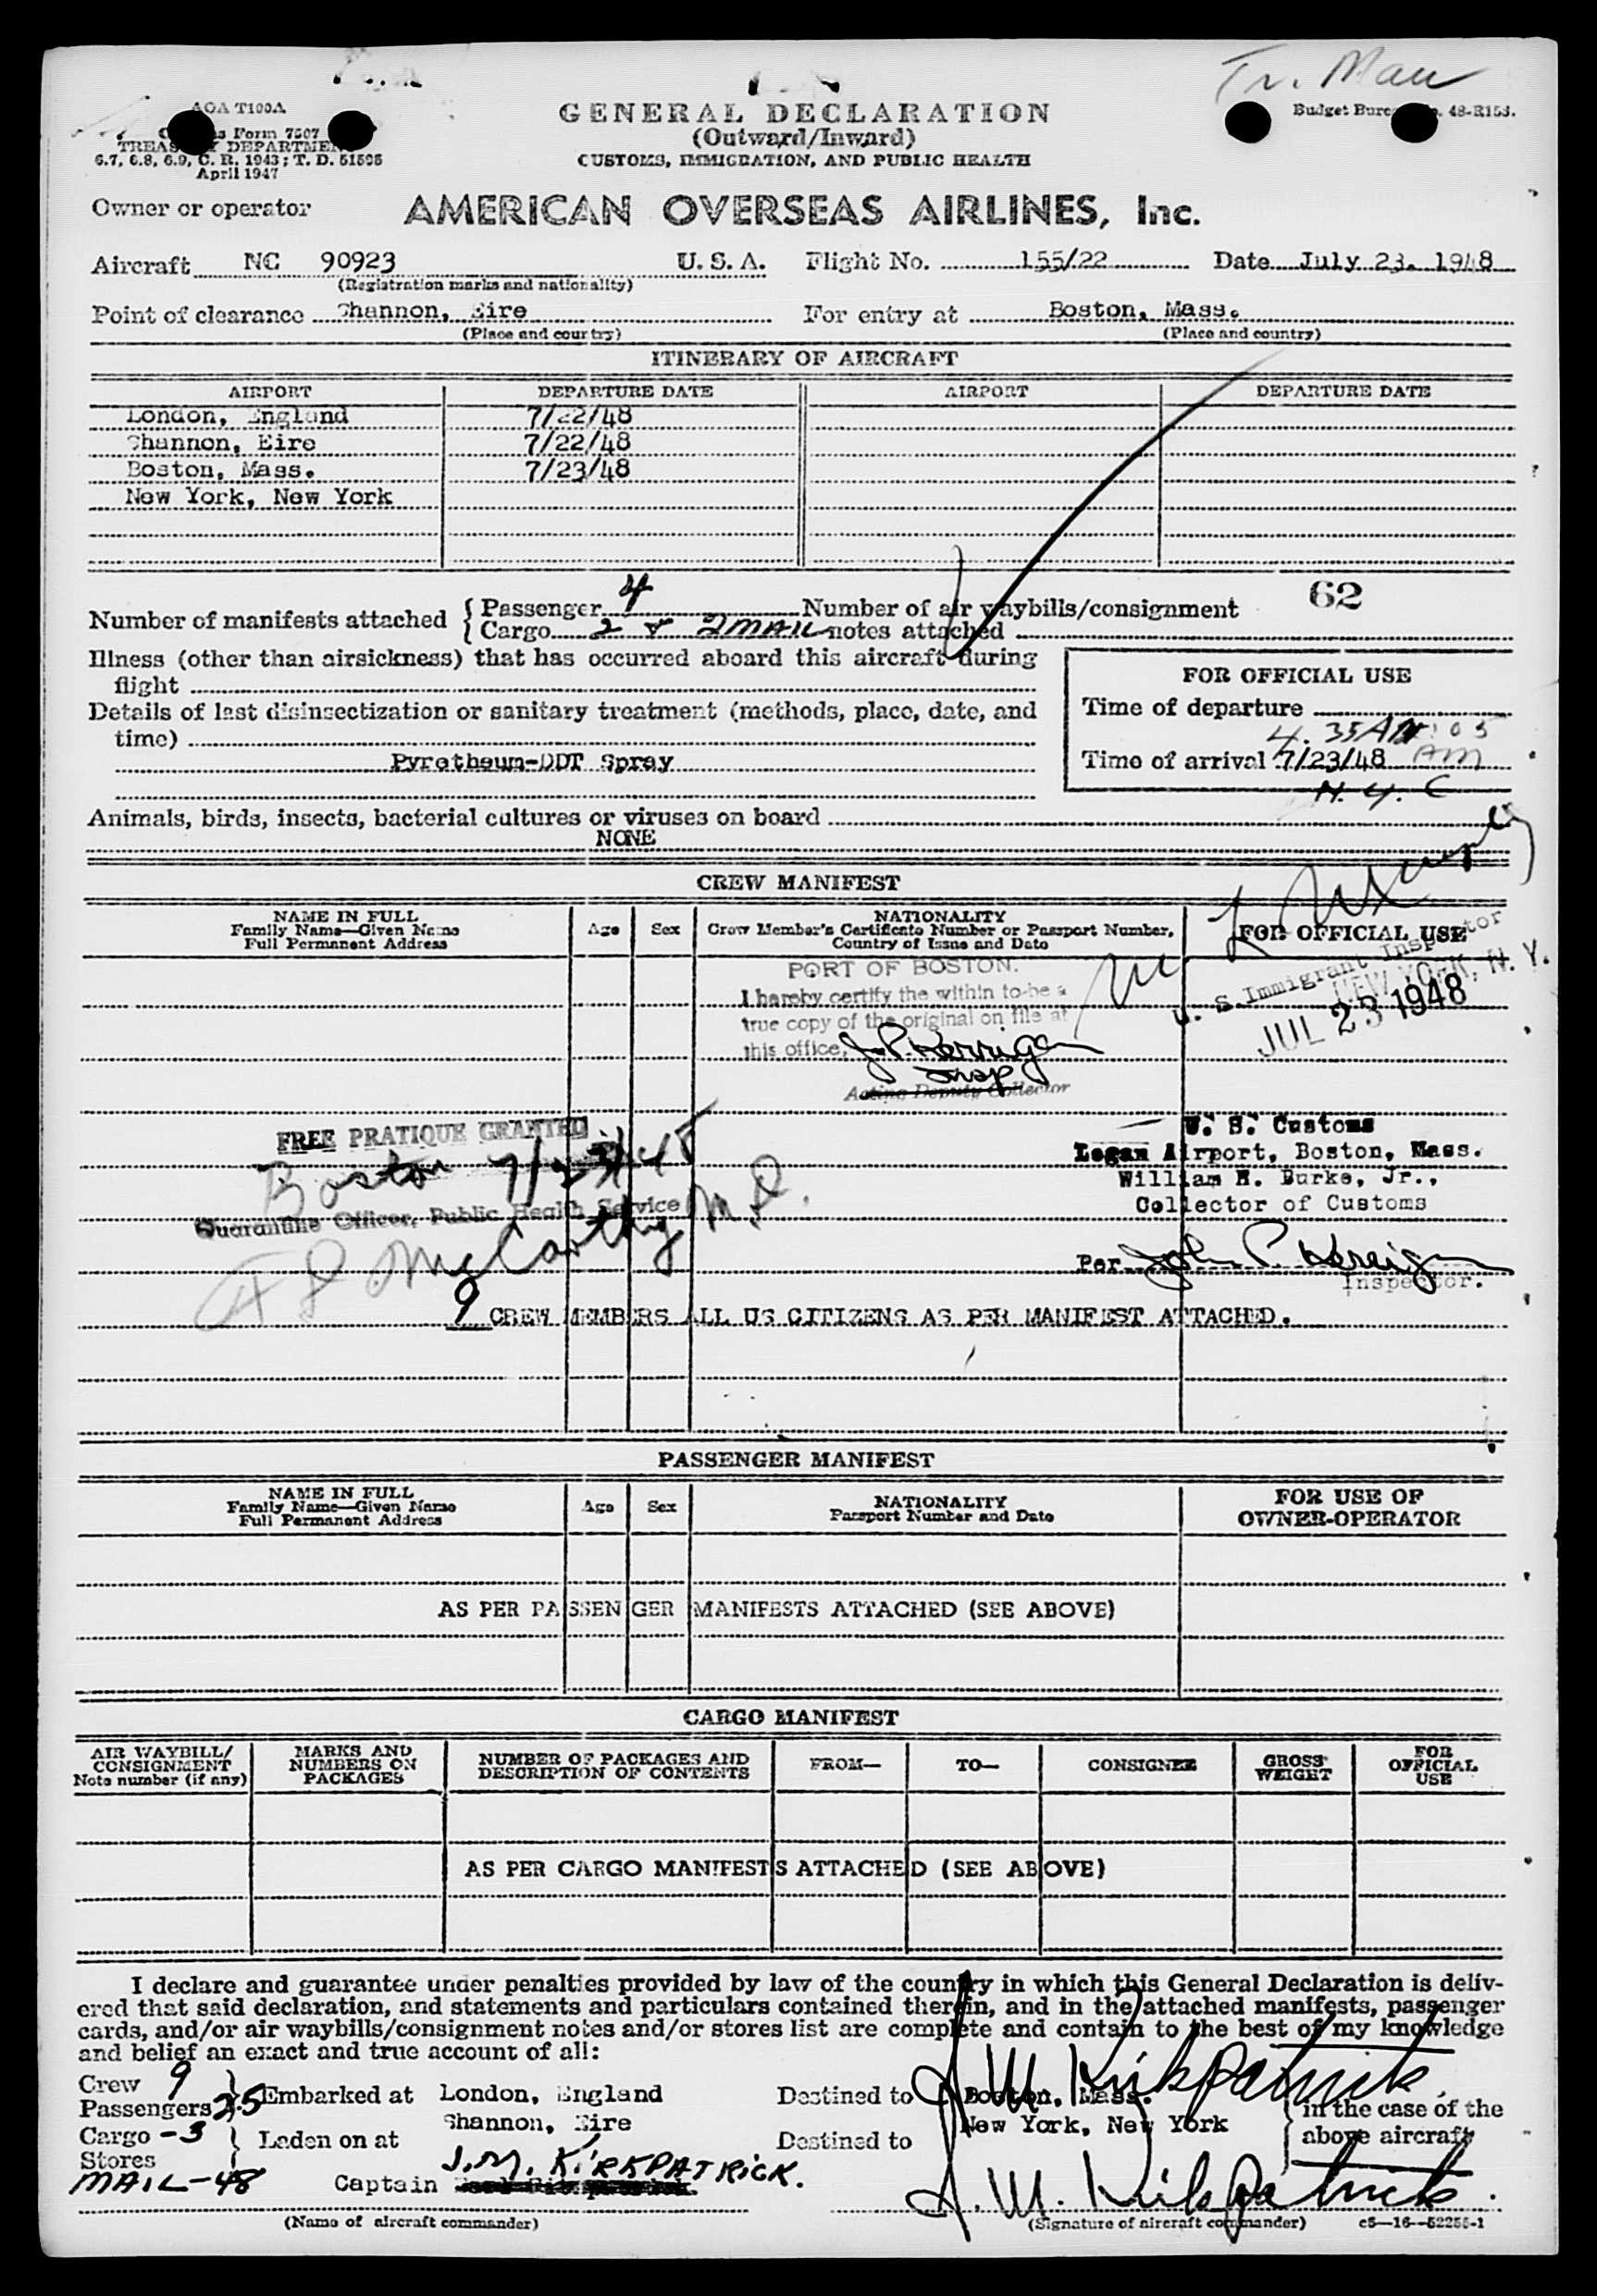 Tr. Man
AOA T100A
Form 7507
TREASURY DEPARTMENT
6.7, 6.8, 6.9, C. R. 1943; T. D. 51595
April 1947
GENERAL DECLARATION
(Outward/Inward)
CUSTOMS, IMMIGRATION, AND PUBLIC HEALTH
Budget Bureau 48-R153.
Owner or operator AMERICAN OVERSEAS AIRLINES, Inc.
Aircraft NC 90923 U. S. A. Flight No. 155/22 Date July 23, 1948
(Registration marks and nationality)
Point of clearance Shannon, Eire For entry at Boston, Mass.
(Place and country) (Place and country)
ITINERARY OF AIRCRAFT
AIRPORT DEPARTURE DATE AIRPORT DEPARTURE DATE
London, England 7/22/48
Shannon, Eire 7/22/48
Boston, Mass. 7/23/48
New York, New York
62
Number of manifests attached { Passenger 4 Number of air waybills/consignment
{ Cargo 2 & 2 MAIL notes attached
Illness (other than airsickness) that has occurred aboard this aircraft during
flight
Details of last disinsectization or sanitary treatment (methods, place, date, and
time)
Pyretheum-DDT Spray
FOR OFFICIAL USE
Time of departure
4.35 AM :05
Time of arrival 7/23/48 AM
N. Y. C
Animals, birds, insects, bacterial cultures or viruses on board
NONE
CREW MANIFEST
NAME IN FULL
Family Name—Given Name
Full Permanent Address
Age Sex
NATIONALITY
Crew Member's Certificate Number or Passport Number,
Country of Issue and Date
FOR OFFICIAL USE
U. S. Immigrant Inspector
NEW YORK, N. Y.
JUL 23 1948
PORT OF BOSTON.
I hereby certify the within to be a
true copy of the original on file at
this office, J.P. Kerrigan
Insp
Acting Deputy Collector
FREE PRATIQUE GRANTED
Boston 7/23/48
Quarantine Officer, Public Health Service
McCarthy M.D.
U. S. Customs
Logan Airport, Boston, Mass.
William H. Burke, Jr.,
Collector of Customs
Per John P. Kerrigan
Inspector.
9 CREW MEMBERS ALL US CITIZENS AS PER MANIFEST ATTACHED.
PASSENGER MANIFEST
NAME IN FULL
Family Name—Given Name
Full Permanent Address
Age Sex
NATIONALITY
Passport Number and Date
FOR USE OF
OWNER-OPERATOR
AS PER PASSENGER MANIFESTS ATTACHED (SEE ABOVE)
CARGO MANIFEST
AIR WAYBILL/
CONSIGNMENT
Note number (if any)
MARKS AND
NUMBERS ON
PACKAGES
NUMBER OF PACKAGES AND
DESCRIPTION OF CONTENTS
FROM—
TO—
CONSIGNEE
GROSS
WEIGHT
FOR
OFFICIAL
USE
AS PER CARGO MANIFESTS ATTACHED (SEE ABOVE)
I declare and guarantee under penalties provided by law of the country in which this General Declaration is deliv-
ered that said declaration, and statements and particulars contained therein, and in the attached manifests, passenger
cards, and/or air waybills/consignment notes and/or stores list are complete and contain to the best of my knowledge
and belief an exact and true account of all:
J. M. Kirkpatrick
Crew 9
Passengers 25 Embarked at London, England Destined to Boston, Mass.
Shannon, Eire New York, New York in the case of the
Cargo - 3 Laden on at Destined to above aircraft
Stores
MAIL - 48 Captain J. M. KIRKPATRICK. J. M. Kirkpatrick
(Name of aircraft commander) (Signature of aircraft commander) c5—16—52255-1